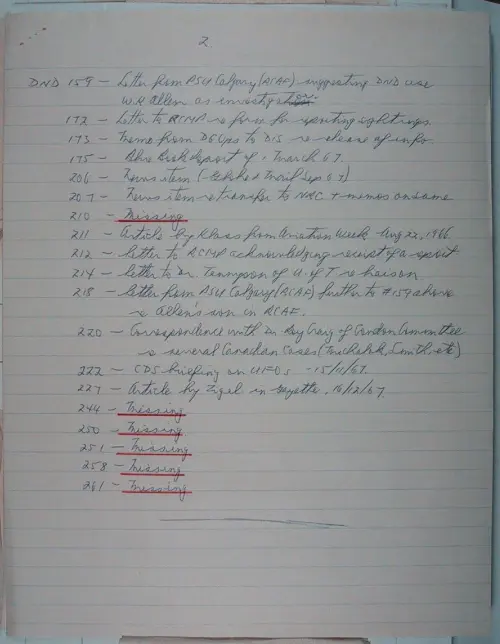 2.
DND 159 - Letter from PSU Calgary (RCAF) suggesting DND use
W.R. Allen as investigator.
172 - Letter to RCMP re form for reporting sightings.
173 - Memo from DG Ops to DIS re release of info.
175 - Report of March 67.
206 - News item (Globe & Mail Sep 67)
207 - News item re transfer to NRC + memos on same
210 - Missing
211 - Article by Klass from Aviation Week Aug 22, 1966
212 - Letter to RCMP acknowledging receipt of a report
214 - Letter to Dr. Tennyson of U. of T re liaison.
218 - Letter from PSU Calgary (RCAF) further to #159 above
re Allen's son in RCAF.
220 - Correspondence with Dr. Roy Craig of Condon Committee
re several Canadian Cases (Michalak, Smith, etc)
222 - CDS briefing on UFOs - 15/11/67.
227 - Article by Zigel in Gazette, 16/12/67.
244 - Missing
250 - Missing
251 - Missing
258 - Missing
261 - Missing